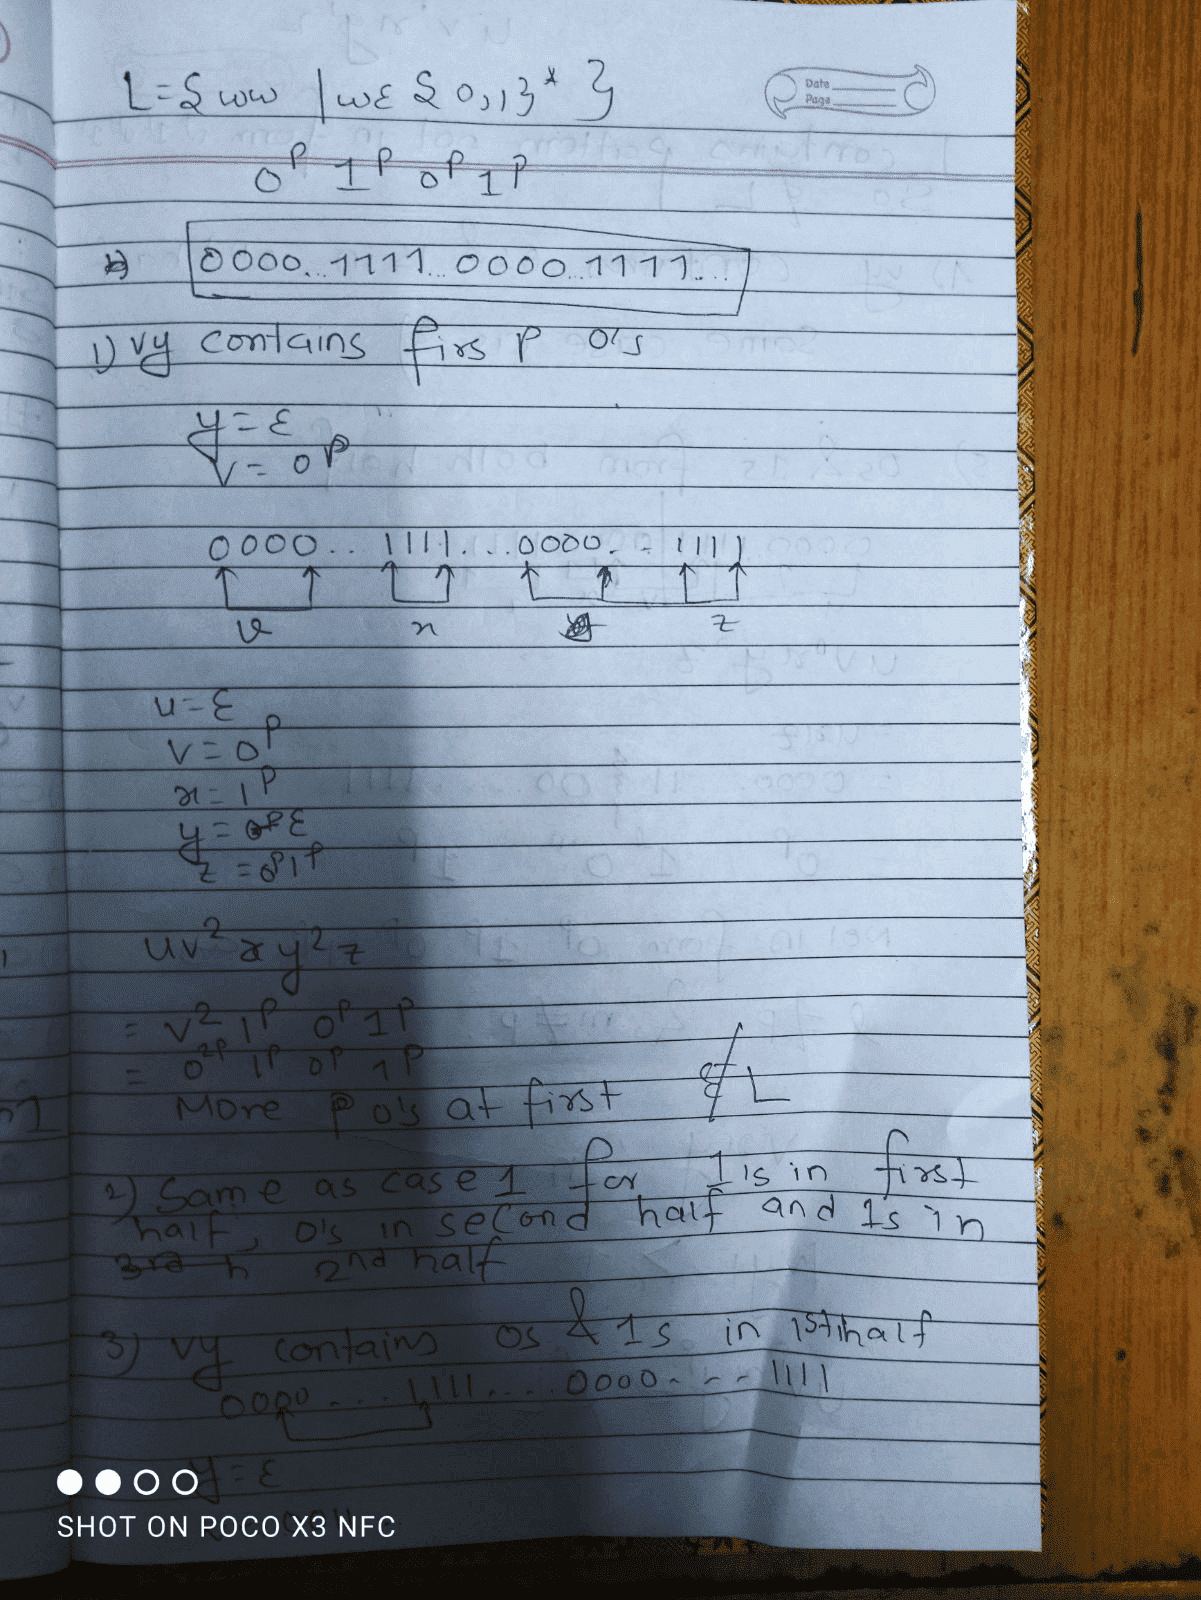 L = { ww | w ε { 0,1 }* }
Date
Page
0^p 1^p 0^p 1^p
0000...1111...0000..1111...
1) vy contains firs p 0's
y = ε
v = 0^p
0000.. 1111...0000.-- 1111
v x z
u = ε
v = 0^p
x = 1^p
y = ε
z = 0^p 1^p
uv²xy²z
= v² 1^p 0^p 1^p
= 0^2p 1^p 0^p 1^p
More p 0's at first ∉ L
2) Same as case 1 for 1's in first
half, 0's in second half and 1s in
2nd half
3) vy contains 0s & 1s in 1st half
0000... 1111....0000---1111
y = ε
SHOT ON POCO X3 NFC